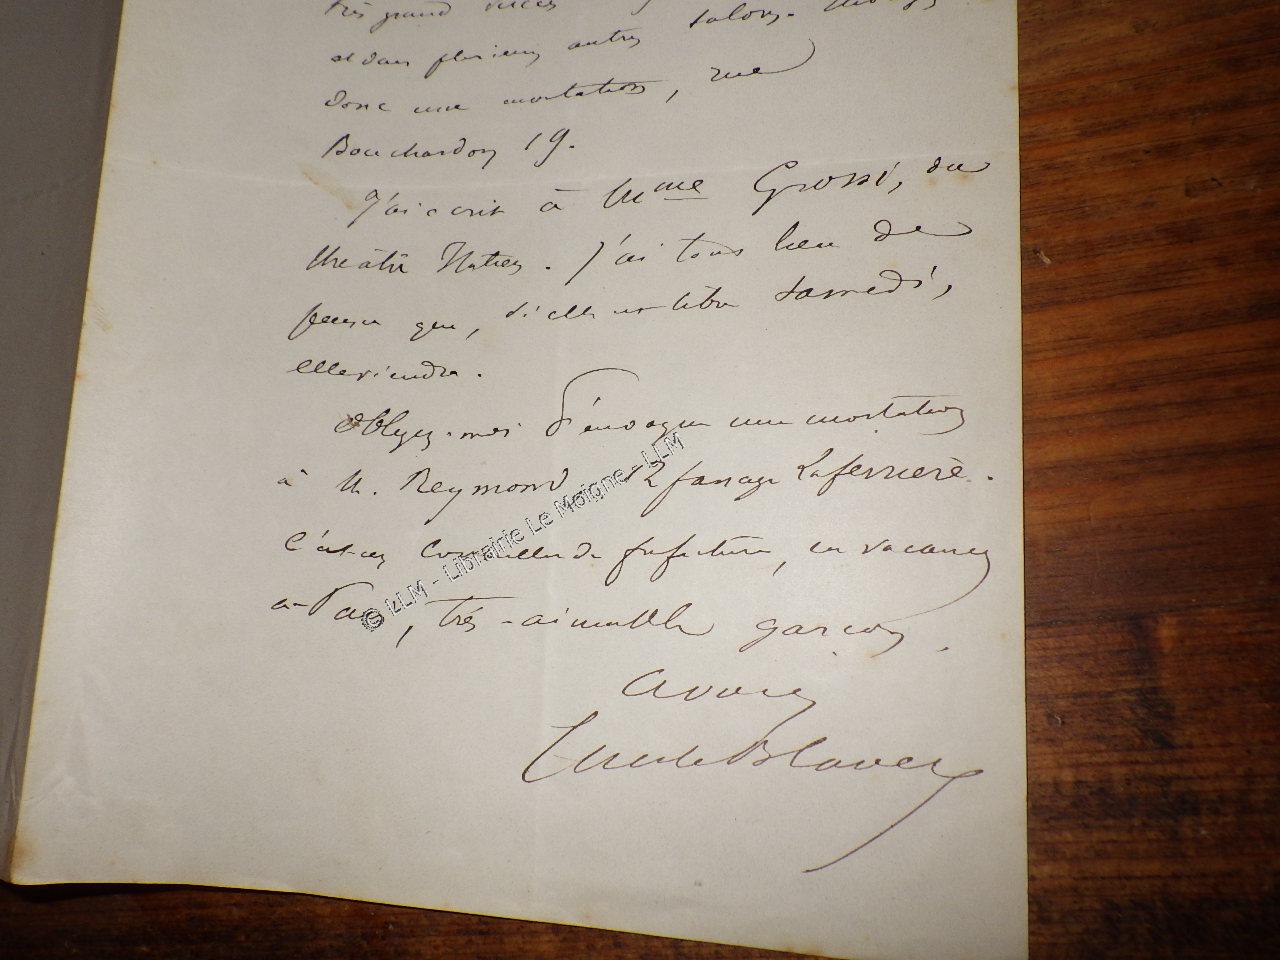 très grand succès
et dans plusieurs autres salons. Envoyez
donc une invitation, rue
Bouchardon 19.
J'ai écrit à Mme Grossi, du
théâtre Italien. J'ai tout lieu de
penser que, si elle est libre samedi,
elle viendra.
Obligez-moi d'envoyer une invitation
à M. Reymond 12 passage Laferrière.
C'est un Conseiller de préfecture, en vacances
à Paris, très-aimable garçon.
à vous
Emile Blavet
© LLM - Librairie Le Moigne - LLM